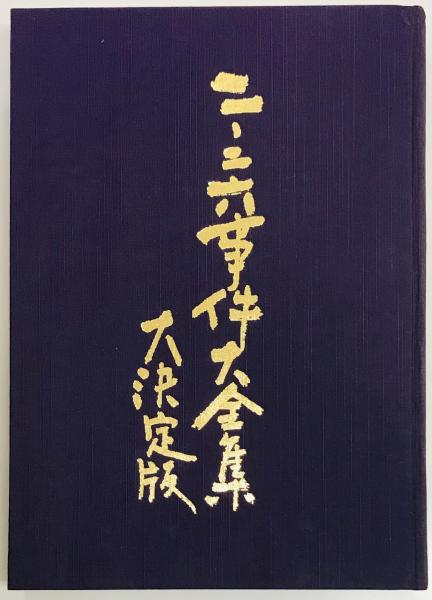 二・二六事件大全集
大決定版